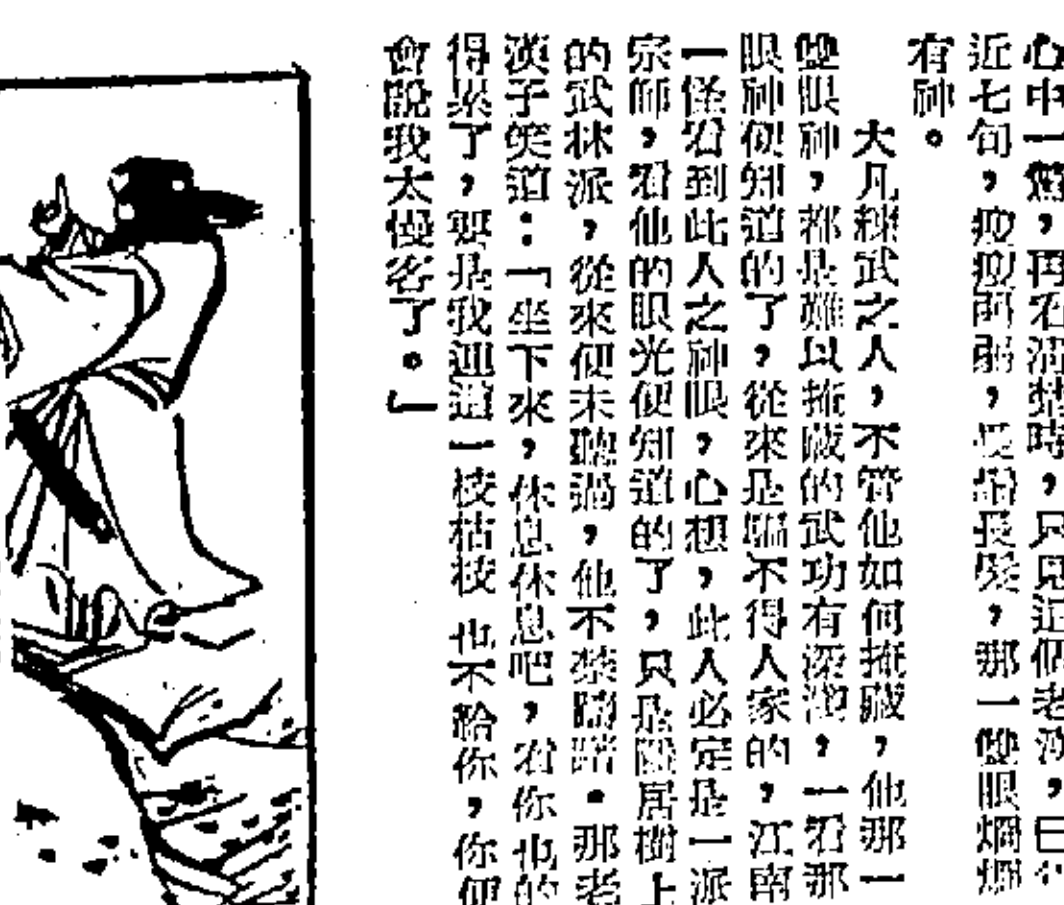 心中一驚,再看清楚時,只見這個老漢,已
近七旬,瘦瘦弱,長鬍長髮,那一雙眼烱烱
有神。
大凡練武之人,不管他如何掩藏,他那一
雙眼神,都是難以掩蔽的武功有深淵,一看那
眼神便知道的了,從來是騙不得人家的,江南
一怪看到此人之神眼,心想,此人必定是一派
宗師,看他的眼光便知道的了,只是隱居樹上
的武林派,從來便未聽過,他不禁躊躇。那老
漢子笑道:「坐下來,休息休息吧,看你也的
得累了,要是我連這一枝枯枝 也不給你,你便
會說我太慢客了。」